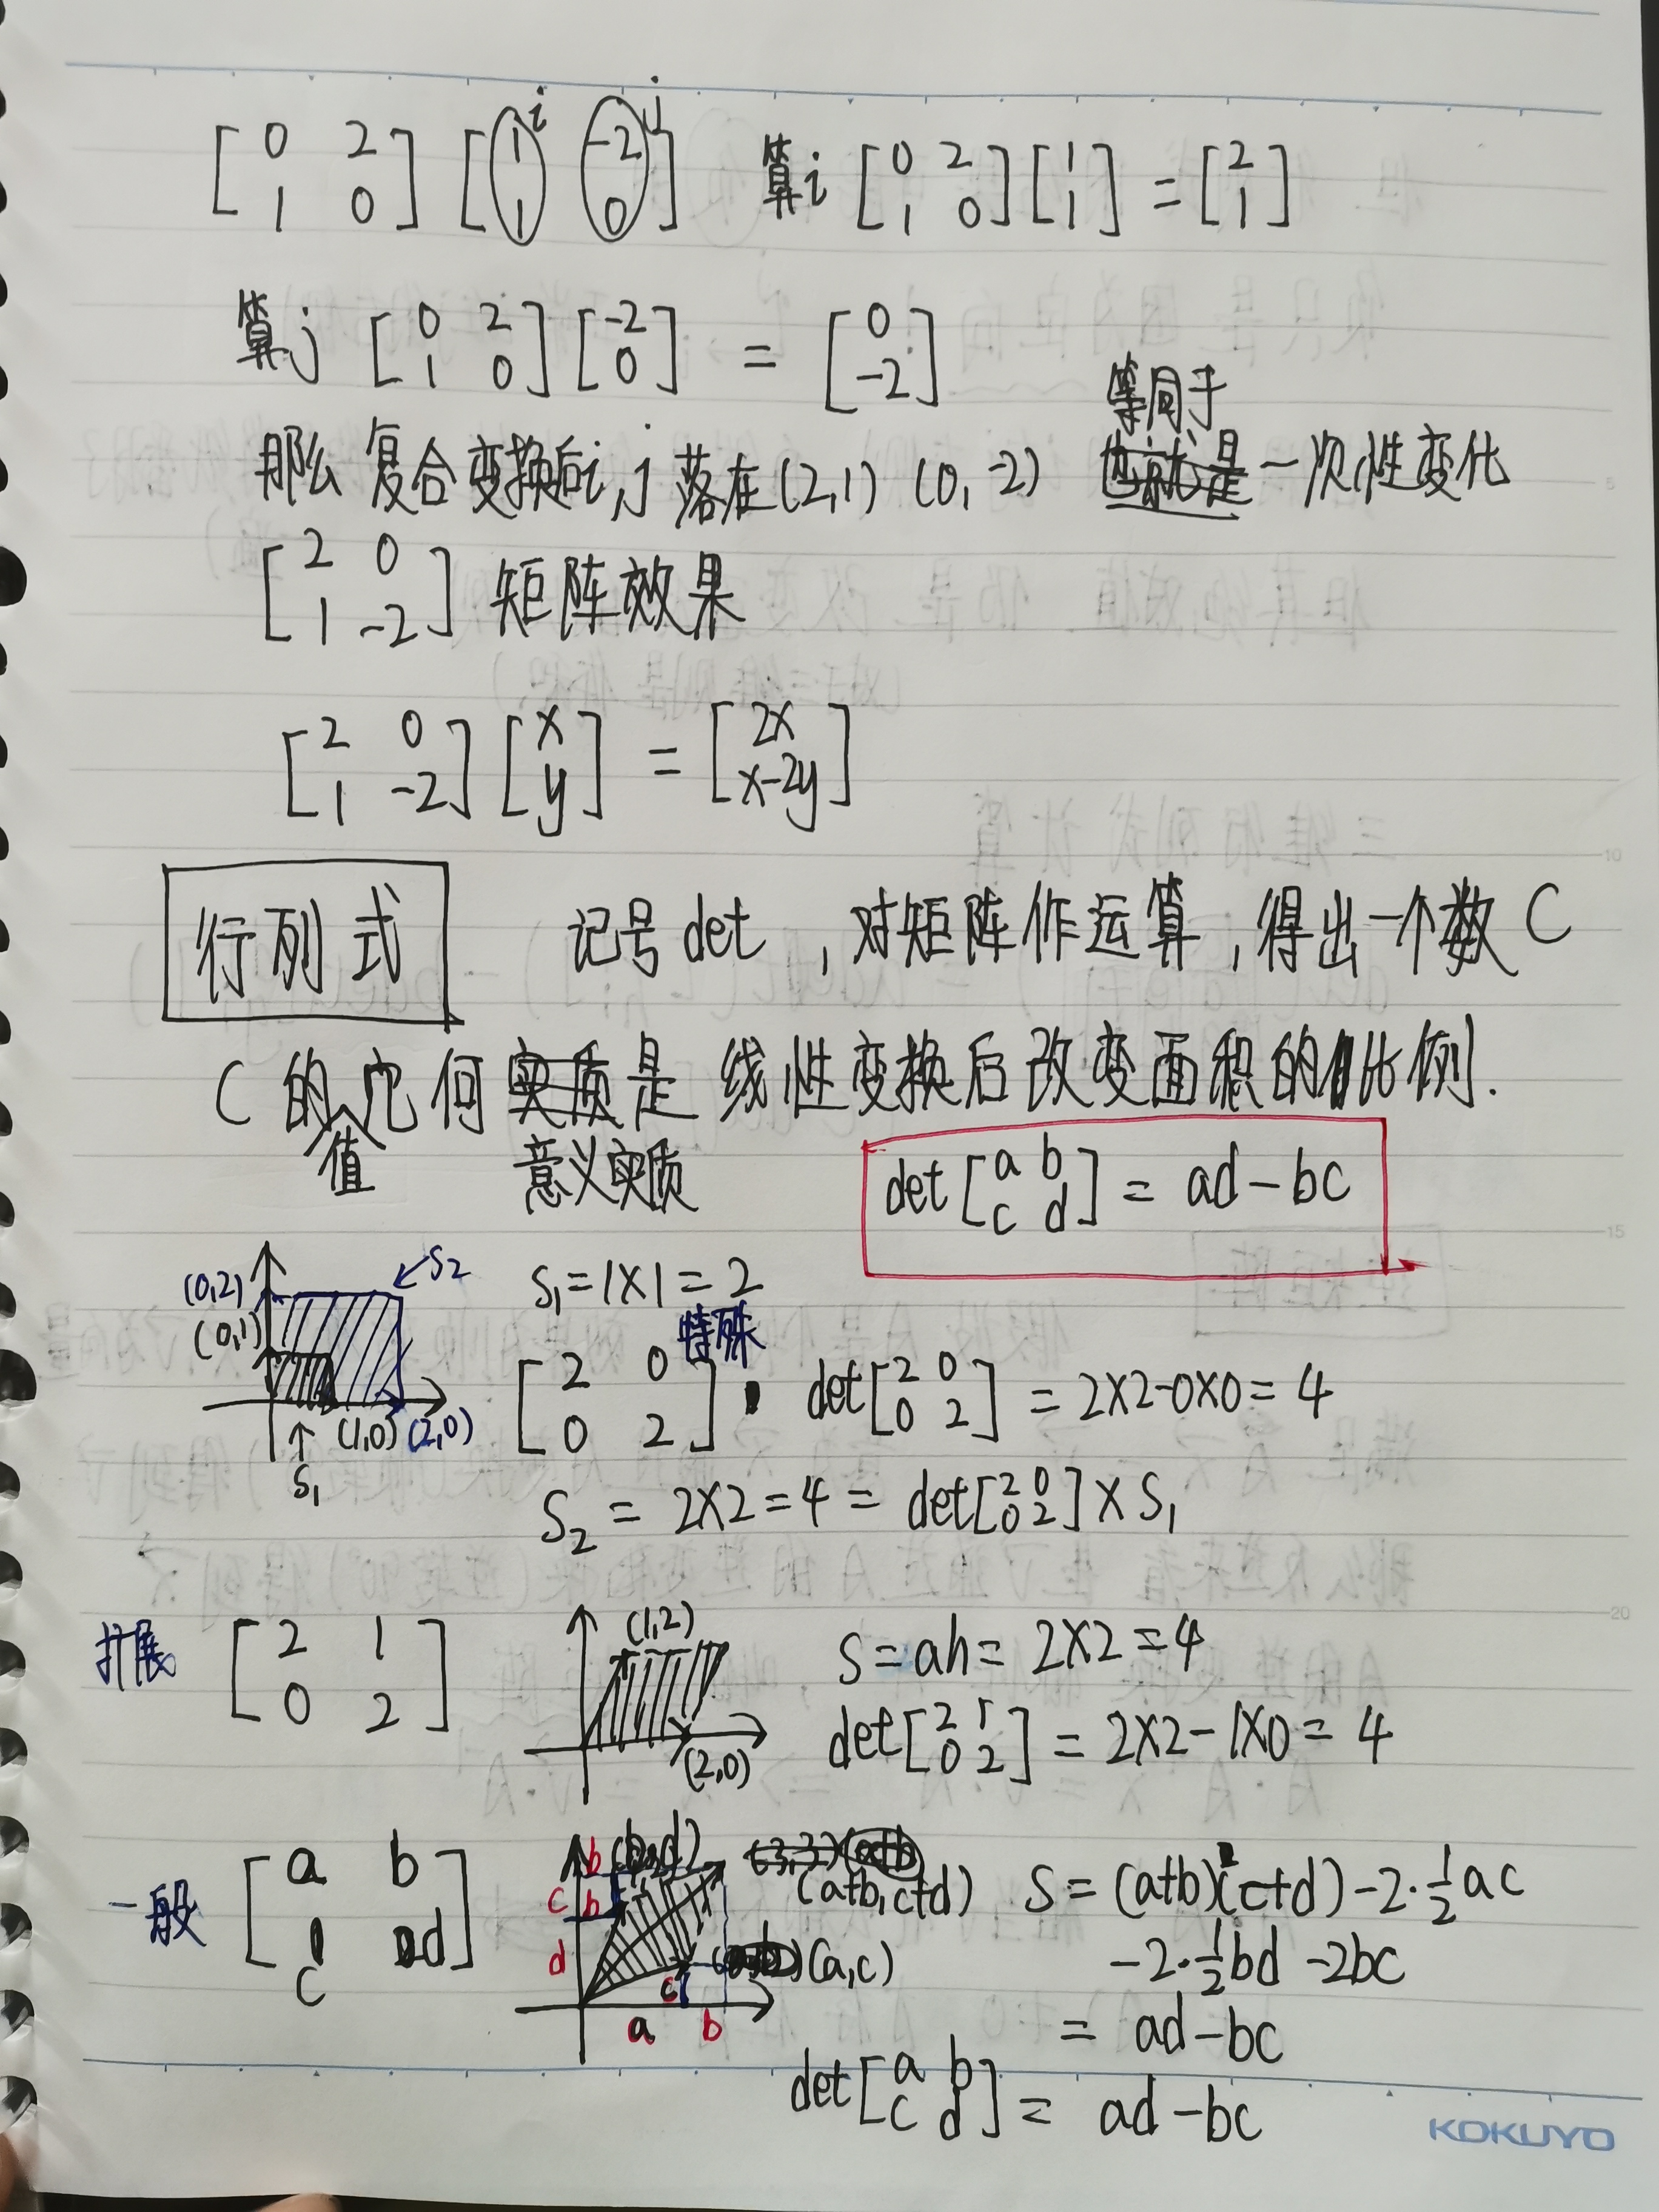 [0 2; 1 0] [1 -2; 1 0] i j 算i [0 2; 1 0] [1; 1] = [2; 1]
算j [0 2; 1 0] [-2; 0] = [0; -2]
等同于
那么 复合变换后i,j 落在(2,1) (0,-2) 也就是 一次性变化
[2 0; 1 -2] 矩阵效果
[2 0; 1 -2] [x; y] = [2x; x-2y]
行列式 记号 det ,对矩阵作运算,得出一个数 C
C 的几何实质是 线性变换后改变面积的比例.
值 意义实质
det [a b; c d] = ad-bc
(0,2) S2
(0,1)
(1,0) (2,0)
S1
S1=1X1=2
特殊
[2 0; 0 2] det[2 0; 0 2] = 2X2-0X0=4
S2 = 2X2=4 = det[2 0; 0 2] X S1
扩展 [2 1; 0 2] (1,2) (2,0)
S=ah= 2X2=4
det[2 1; 0 2] = 2X2-1X0= 4
一般 [a b; c d]
b (b,d)
c b (a+b,c+d)
d (a,c)
c
a b
S=(a+b)(c+d)-2·1/2ac
-2·1/2bd-2bc
= ad-bc
det[a b; c d] = ad-bc
KOKUYO